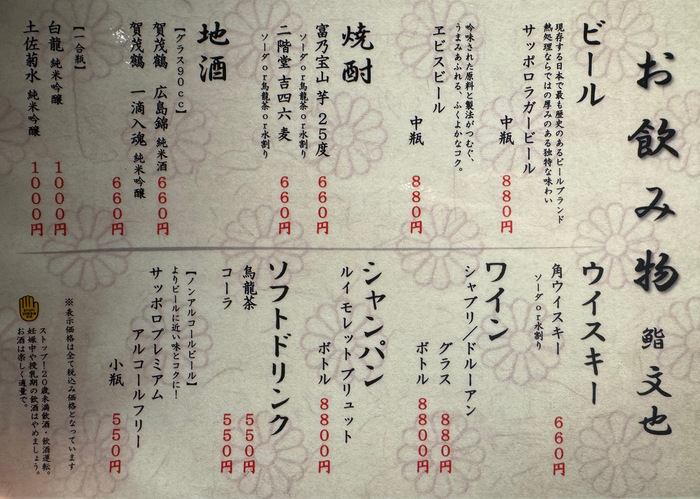 お飲み物 鮨 文也
ビール
現存する日本で最も歴史のあるビールブランド
熱処理ならではの厚みのある独特な味わい
サッポロラガービール
中瓶 880円
吟味された原料と製法がつむぐ、
うまみあふれる、ふくよかなコク。
ヱビスビール
中瓶 880円
焼酎
富乃宝山 芋 25度 660円
ソーダor烏龍茶or水割り
二階堂 吉四六 麦 660円
ソーダor烏龍茶or水割り
地酒
【グラス90cc】
賀茂鶴 広島錦 純米酒 660円
賀茂鶴 一滴入魂 純米吟醸
660円
【一合瓶】
白龍 純米吟醸 1000円
土佐菊水 純米吟醸 1000円
ウイスキー
角ウイスキー 660円
ソーダor水割り
ワイン
シャブリ/ドルーアン
グラス 880円
ボトル 8800円
シャンパン
ルイモレットブリュット
ボトル 8800円
ソフトドリンク
烏龍茶 550円
コーラ 550円
【ノンアルコールビール】
よりビールに近い味とコクに！
サッポロプレミアム
アルコールフリー
小瓶 550円
※表示価格は全て税込み価格となっています
ストップ！20歳未満飲酒・飲酒運転。
妊娠中や授乳期の飲酒はやめましょう。
お酒は楽しく適量で。